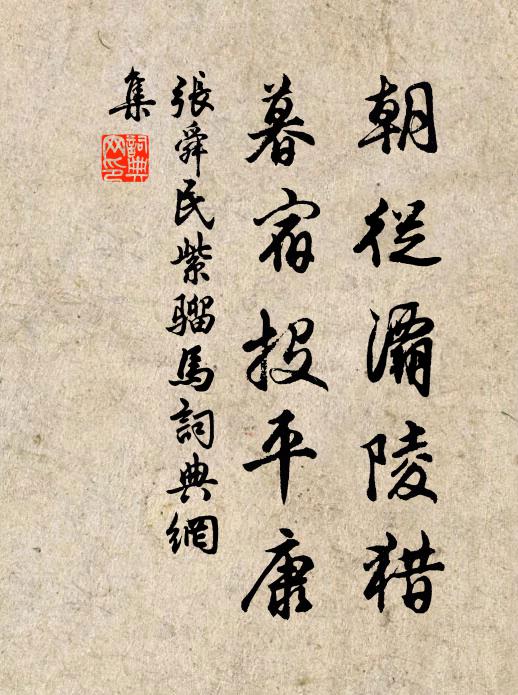 朝從灞陵猎
暮宿投平康
張舜民紫騮馬詞典網
集
詞典
网印